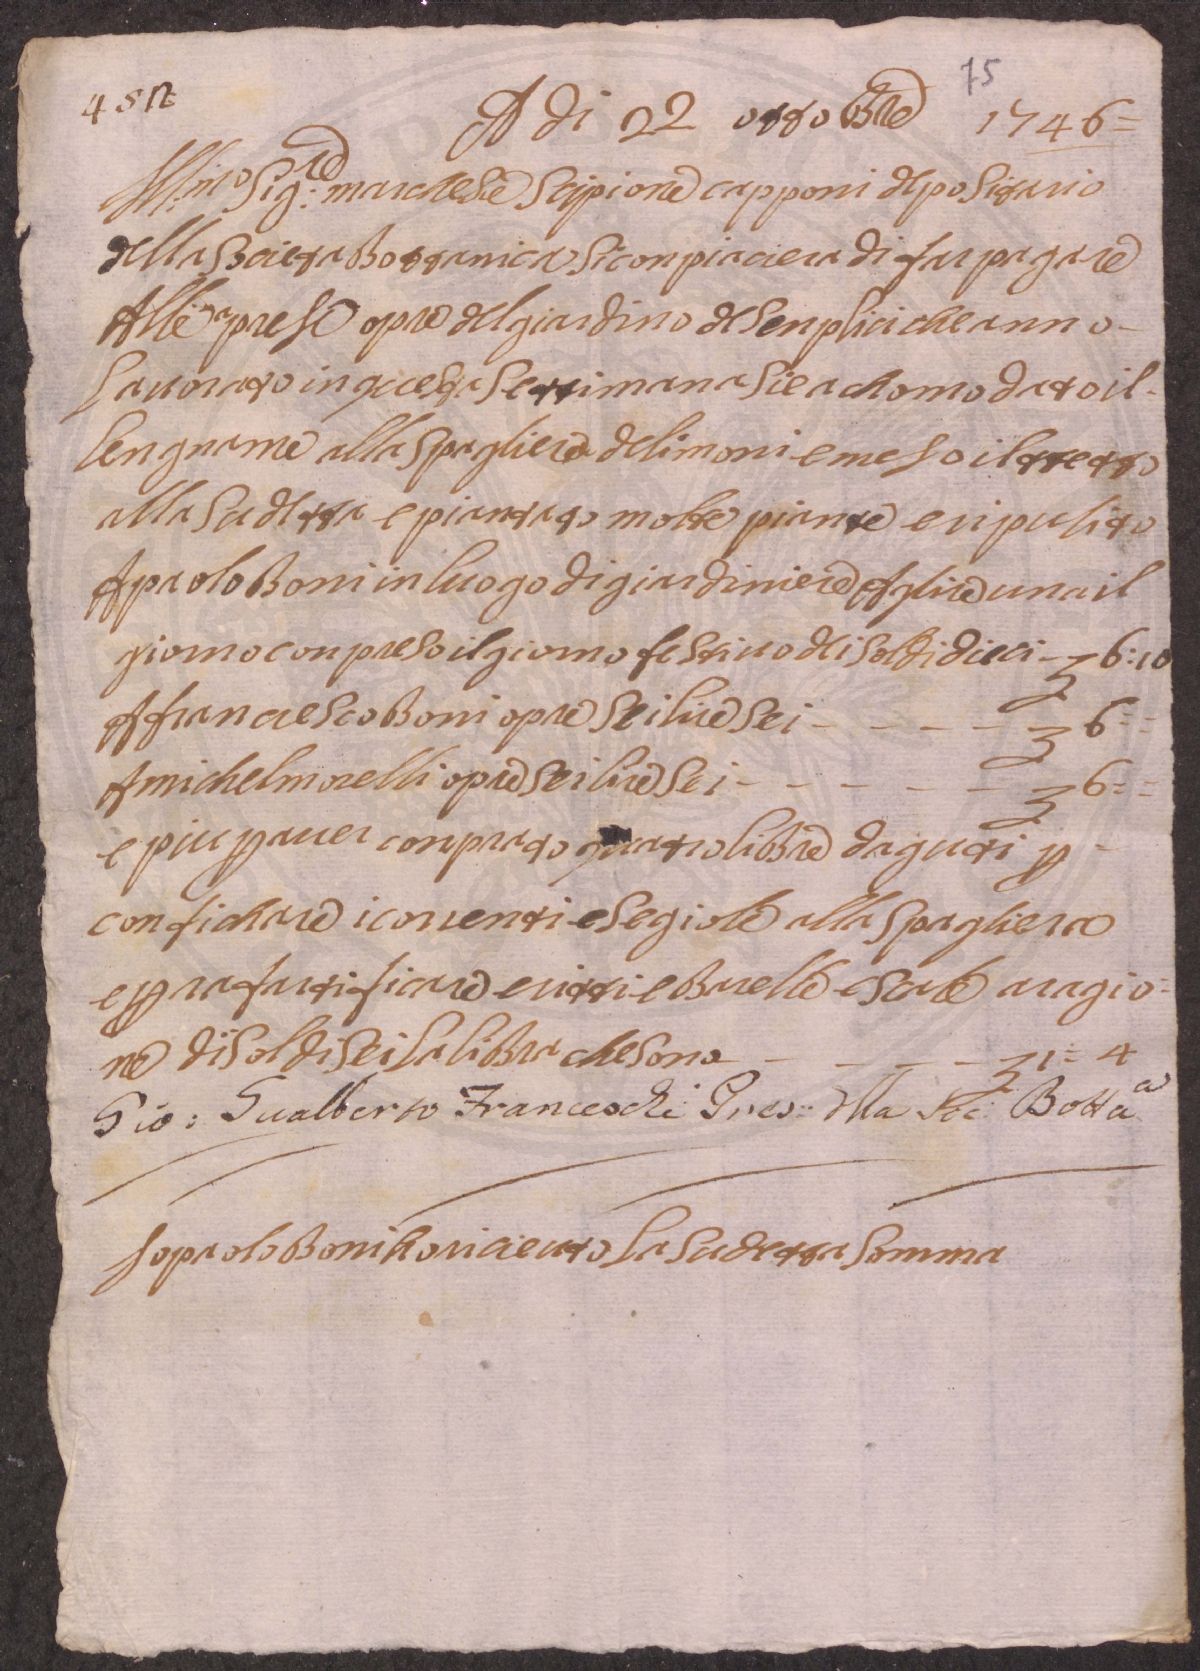 75
A di 22 ottobre 1746=
Ill:mo Sig:re marchese Scipione capponi depositario
della Societa Bottanica si conpiaciera di far pagare
Alle apreso opre del giardino de Senplici che anno
lavorato in questa Settimana sie achomodato il
lengname alla spagliera de limoni e meso il tetto
alla sudetta e piantato molte piante e ripulito
A paolo Boni in luogo di giardiniere A lire una il
giorno conpreso il giorno festivo di soldi dieci - 6:10
A franciesco Boni opre sei lire sei - - - - - 6=
A michel morelli opre sei lire sei - - - - - 6=
e piu p aver conprato quatro libbre daguti p
confichare i correnti e segiole alla spagliera
e p rafartificare eritti e Barelle e scale a ragio=
ne di soldi sei la libra che sono - - - - 1=4
Gio: Gualberto Franceschi Pres: della Soc: Botta:ca
Io paolo Boni ho riceuto la sudetta somma